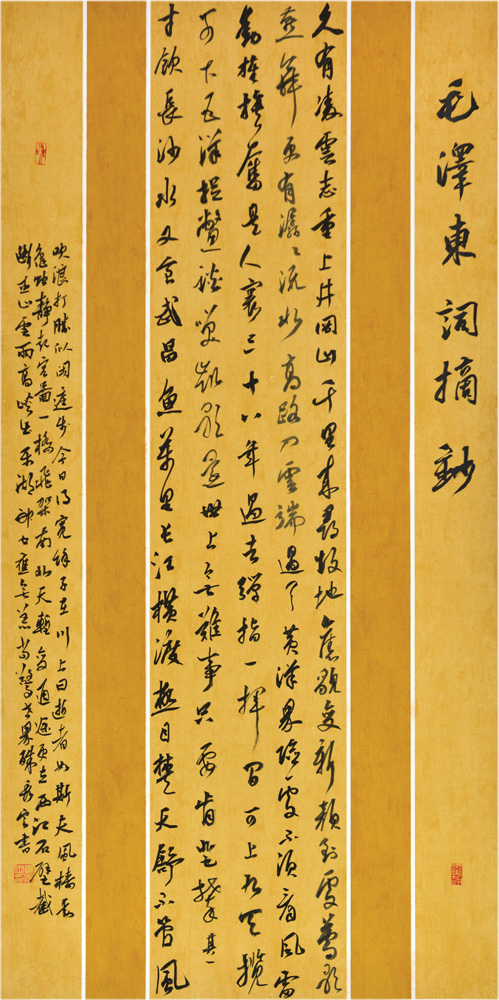 毛澤東詞摘鈔
久有凌雲志重上井岡山千里來尋故地舊貌變新顏到處鶯歌
燕舞更有潺々流水高路入雲端過了黃洋界險處不須看風雷
動旌旗奮是人寰三十八年過去彈指一揮間可上九天攬
可下五洋捉鱉談笑凱歌還世上無難事只要肯登攀其一
才飲長沙水又食武昌魚萬里長江橫渡極目楚天舒不管風
吹浪打勝似閑庭步今日得寬餘子在川上曰逝者如斯夫風檣動
龜蛇靜起宏圖一橋飛架南北天塹變通途更立西江石壁截
斷巫山雲雨高峽出平湖神女應無恙當驚世界殊書